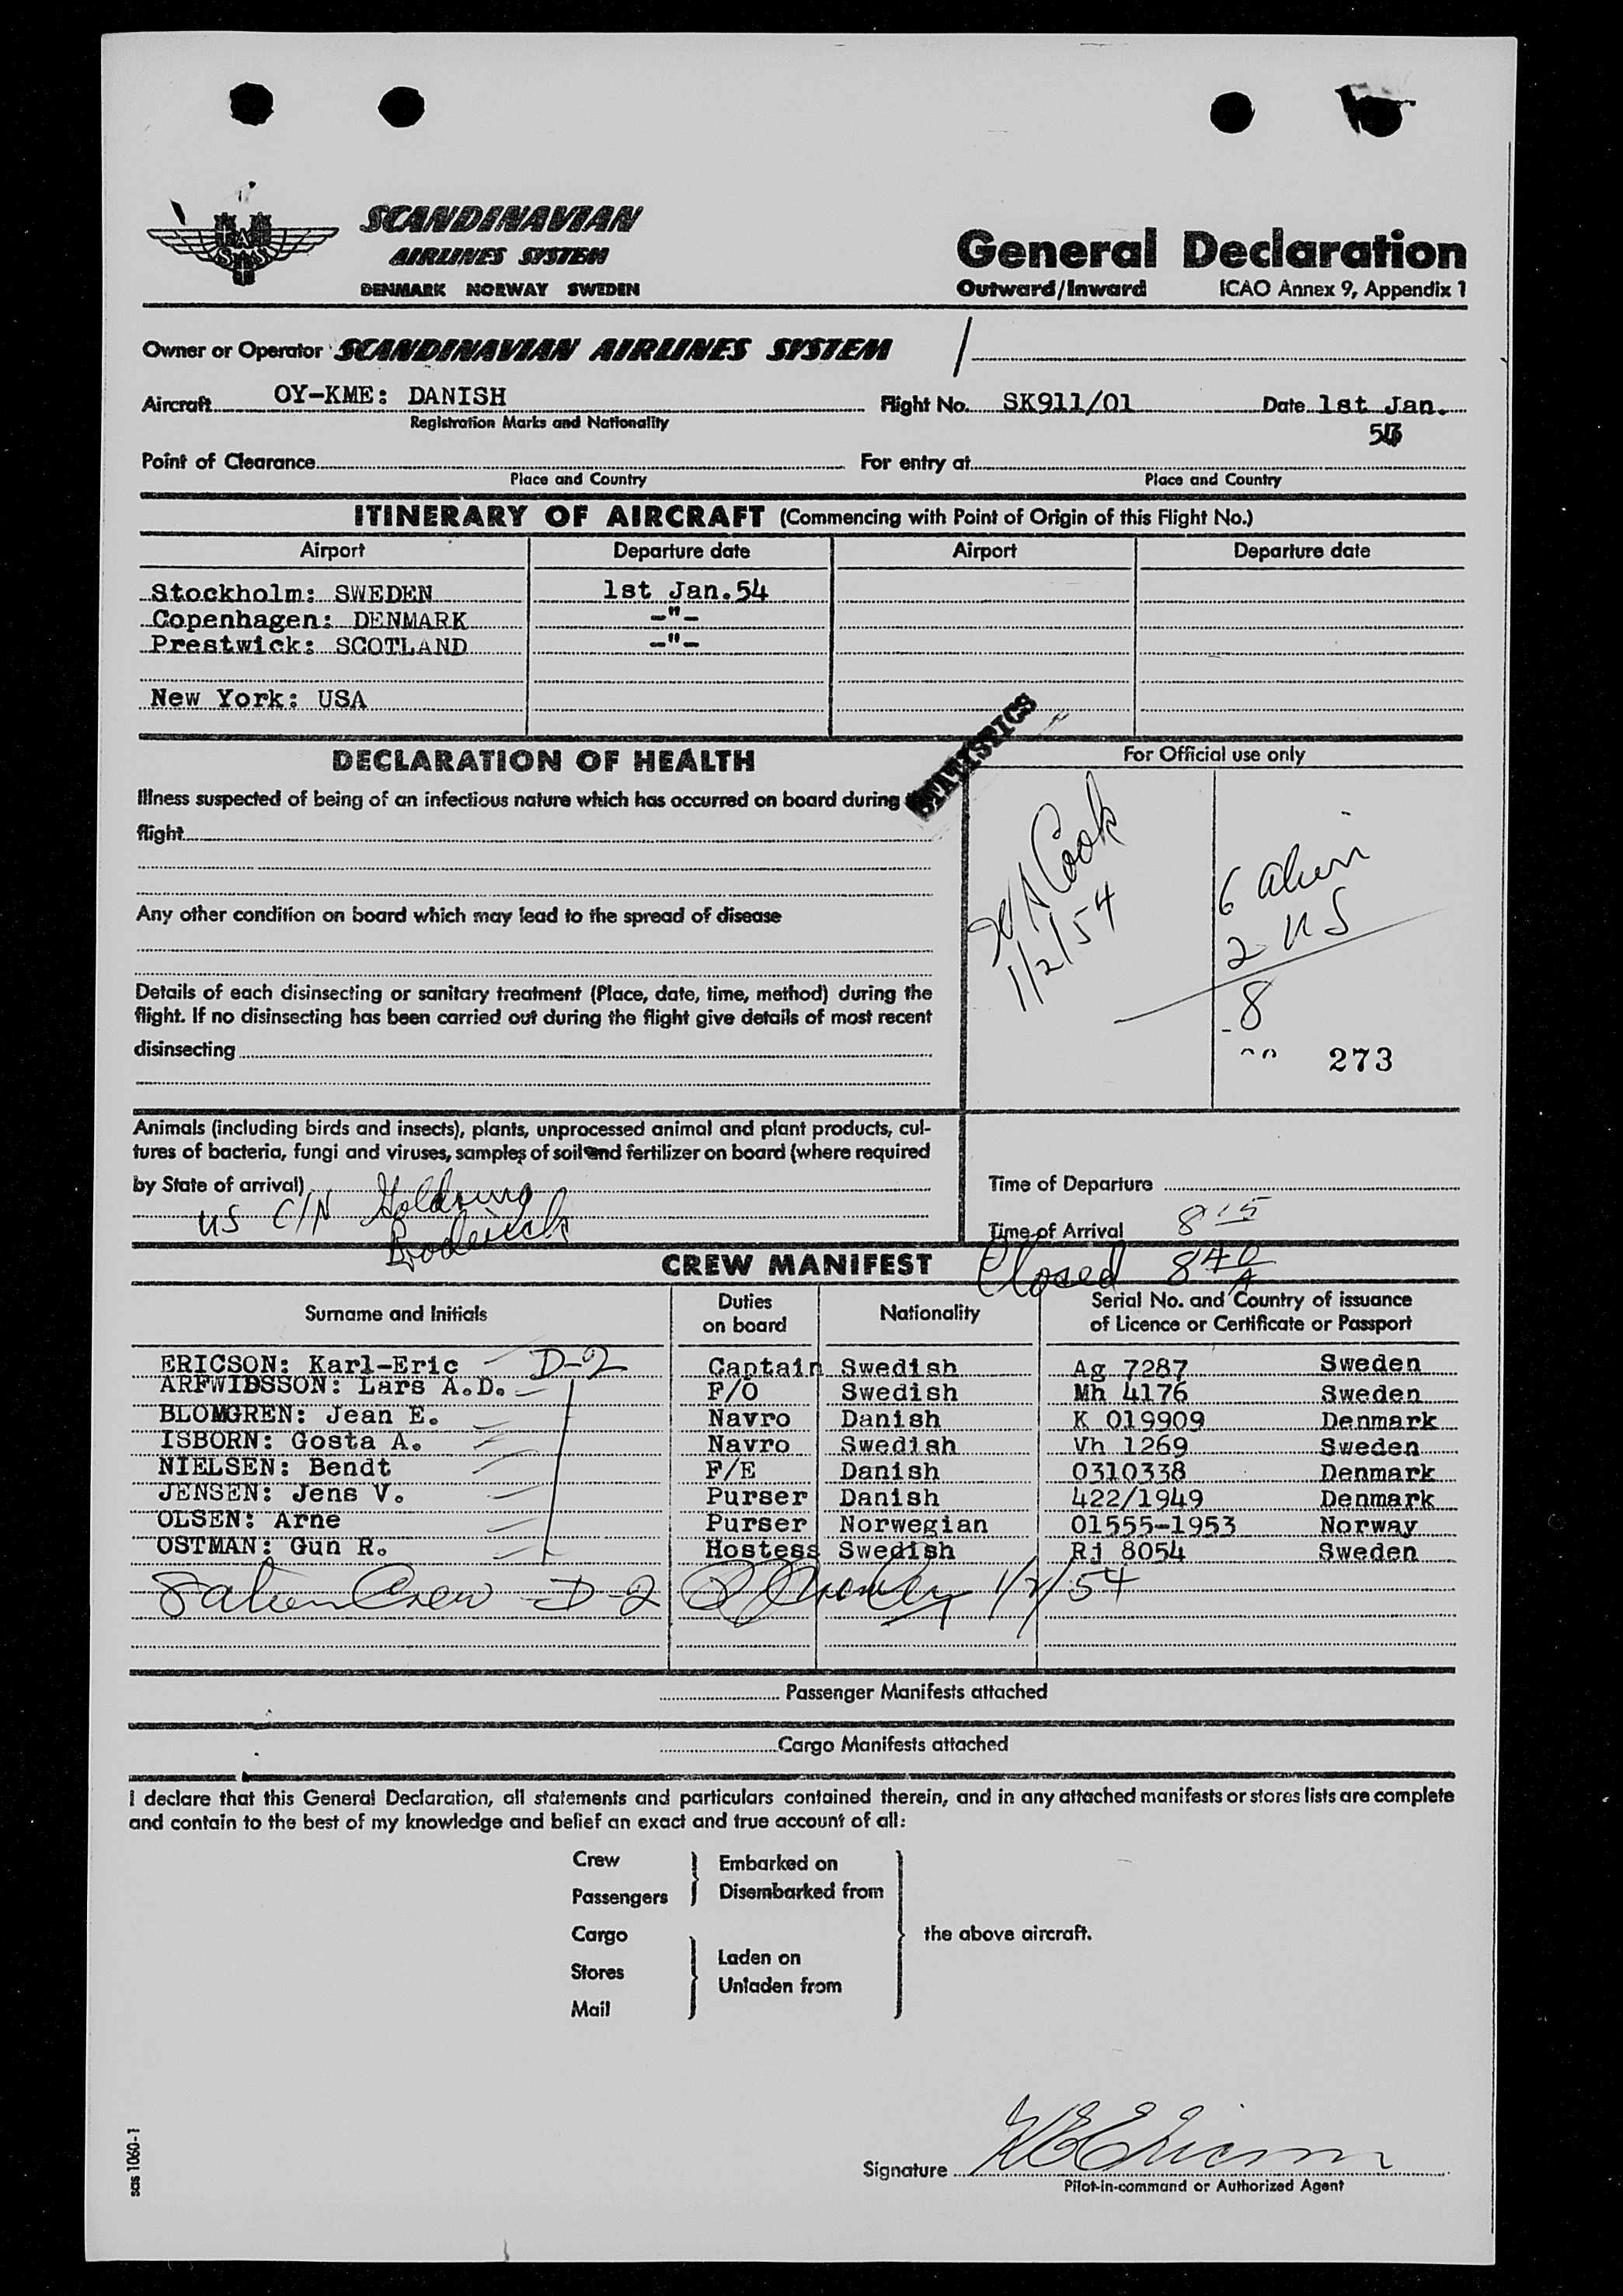 SCANDINAVIAN
AIRLINES SYSTEM
DENMARK NORWAY SWEDEN
General Declaration
Outward/Inward ICAO Annex 9, Appendix 1
Owner or Operator SCANDINAVIAN AIRLINES SYSTEM /
Aircraft OY-KME: DANISH Flight No. SK911/01 Date 1st Jan.
Registration Marks and Nationality
Point of Clearance For entry at
Place and Country Place and Country
ITINERARY OF AIRCRAFT (Commencing with Point of Origin of this Flight No.)
Airport Departure date Airport Departure date
Stockholm: SWEDEN 1st Jan.54
Copenhagen: DENMARK -"-
Prestwick: SCOTLAND -"-
New York: USA
STATISTICS
DECLARATION OF HEALTH For Official use only
Illness suspected of being of an infectious nature which has occurred on board during
flight
Cook
1/2/54
6 alien
2 US
8
273
Any other condition on board which may lead to the spread of disease
Details of each disinsecting or sanitary treatment (Place, date, time, method) during the
flight. If no disinsecting has been carried out during the flight give details of most recent
disinsecting
Animals (including birds and insects), plants, unprocessed animal and plant products, cul-
tures of bacteria, fungi and viruses, samples of soil and fertilizer on board (where required
by State of arrival)
US C/N Goldring
Broderick
Time of Departure
Time of Arrival 8 15
Closed 840 A
CREW MANIFEST
Surname and Initials Duties on board Nationality Serial No. and Country of issuance of Licence or Certificate or Passport
ERICSON: Karl-Eric D-2 Captain Swedish Ag 7287 Sweden
ARFWIDSSON: Lars A.D. F/O Swedish Mh 4176 Sweden
BLOMGREN: Jean E. Navro Danish K 019909 Denmark
ISBORN: Gosta A. Navro Swedish Vh 1269 Sweden
NIELSEN: Bendt F/E Danish 0310338 Denmark
JENSEN: Jens V. Purser Danish 422/1949 Denmark
OLSEN: Arne Purser Norwegian 01555-1953 Norway
OSTMAN: Gun R. Hostess Swedish Rj 8054 Sweden
8 alien Crew D-2 1/2/54
Passenger Manifests attached
Cargo Manifests attached
I declare that this General Declaration, all statements and particulars contained therein, and in any attached manifests or stores lists are complete
and contain to the best of my knowledge and belief an exact and true account of all:
Crew Embarked on
Passengers Disembarked from
Cargo the above aircraft.
Laden on
Stores
Unladen from
Mail
Signature KEEricson
Pilot-in-command or Authorized Agent
sas 1060-1